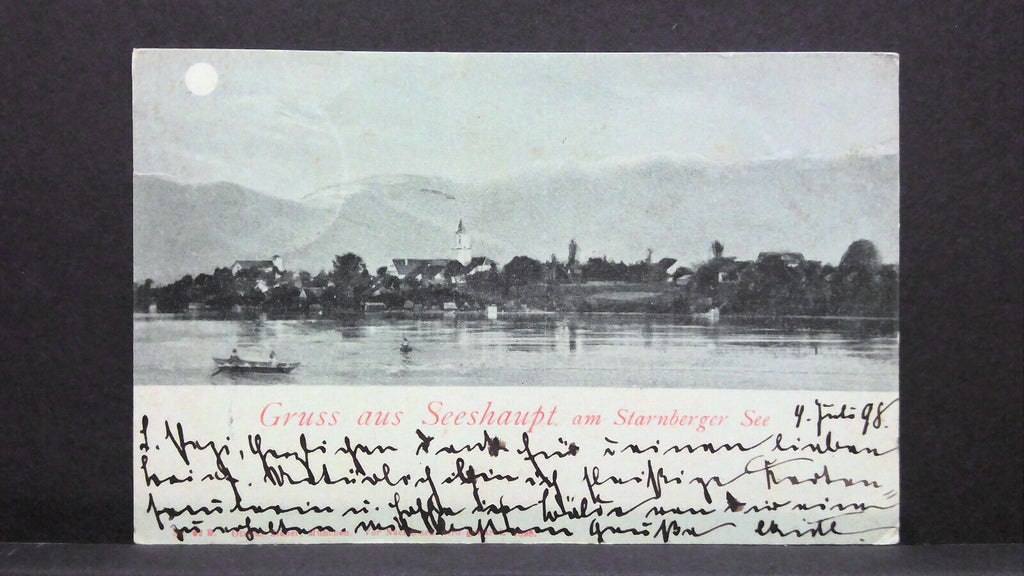 Gruss aus Seeshaupt am Starnberger See
4. Juli 98.
L. Pezi, Herzlichen Dank für deinen lieben
Brief. Natürlich bin ich fleißige Karten=
sammlerin u. hoffe in Bälde von dir eine
zu erhalten. Mit besten Grüße